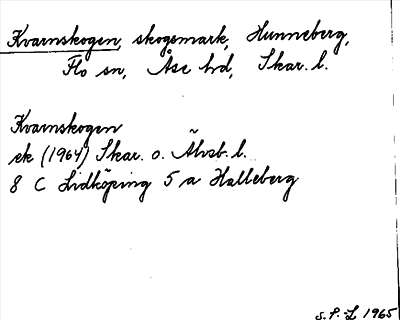 Kvarnskogen, skogsmark, Hunneberg,
Flo sn, Åse hd, Skar. l.
Kvarnskogen
ek (1964) Skar. o. Älvsb. l.
8 C Lidköping 5 a Halleberg
S.P.L 1965